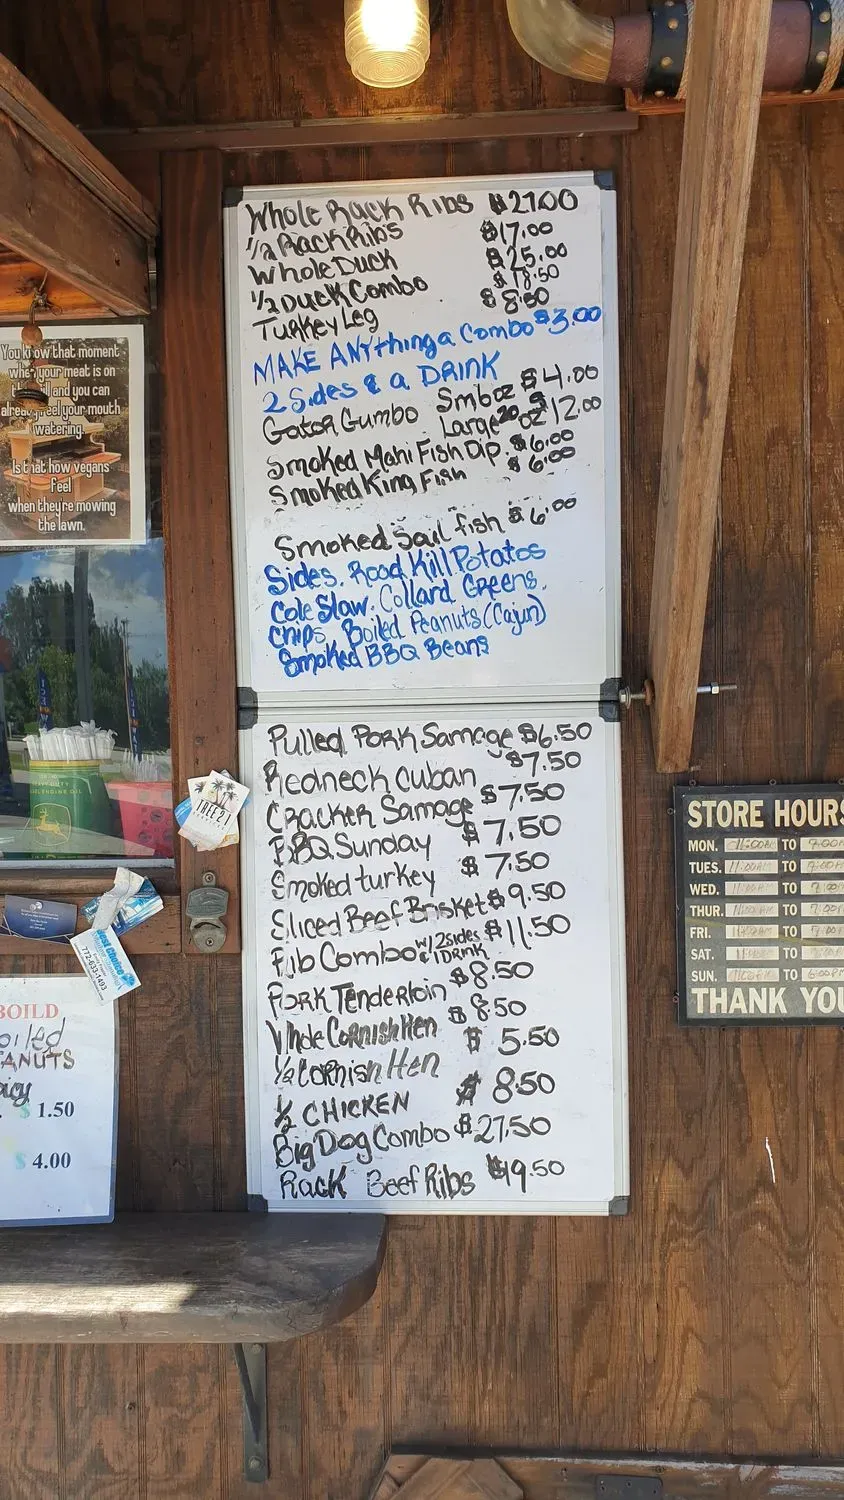 Whole Rack Ribs $27.00
1/2 Rack Ribs $17.00
Whole Duck $25.00
1/2 Duck Combo $18.50
Turkey Leg $8.50
MAKE ANYthing a Combo $3.00
2 Sides & a DRINK
Gator Gumbo Sm 6oz $4.00
Large 20 oz $12.00
Smoked Mahi Fish Dip $6.00
Smoked King Fish $6.00
Smoked Sail fish $6.00
Sides. Road Kill Potatos
Cole Slaw. Collard Greens.
Chips. Boiled Peanuts (Cajun)
Smoked BBQ Beans
Pulled Pork Samage $6.50
Redneck Cuban $7.50
Cracker Samage $7.50
BBQ Sunday $7.50
Smoked turkey $7.50
Sliced Beef Brisket $9.50
Rib Combo w/ 2 sides & 1 DRINK $11.50
Pork Tenderloin $8.50
Whole Cornish Hen $8.50
1/2 Cornish Hen $5.50
1/2 CHICKEN $8.50
Big Dog Combo $27.50
Rack Beef Ribs $19.50
You know that moment
when your meat is on
the grill and you can
already feel your mouth
watering.
Is that how vegans
feel
when they're mowing
the lawn.
TREE21
772-633-1493
BOILD
Boiled
PEANUTS
$ 1.50
$ 4.00
STORE HOURS
MON. 11:00AM TO 7:00PM
TUES. 11:00AM TO 7:00PM
WED. 11:00AM TO 7:00PM
THUR. 11:00AM TO 7:00
FRI. 11:00AM TO 7:00
SAT. 11:00AM TO 7:00
SUN. 11:00AM TO 6:00PM
THANK YOU